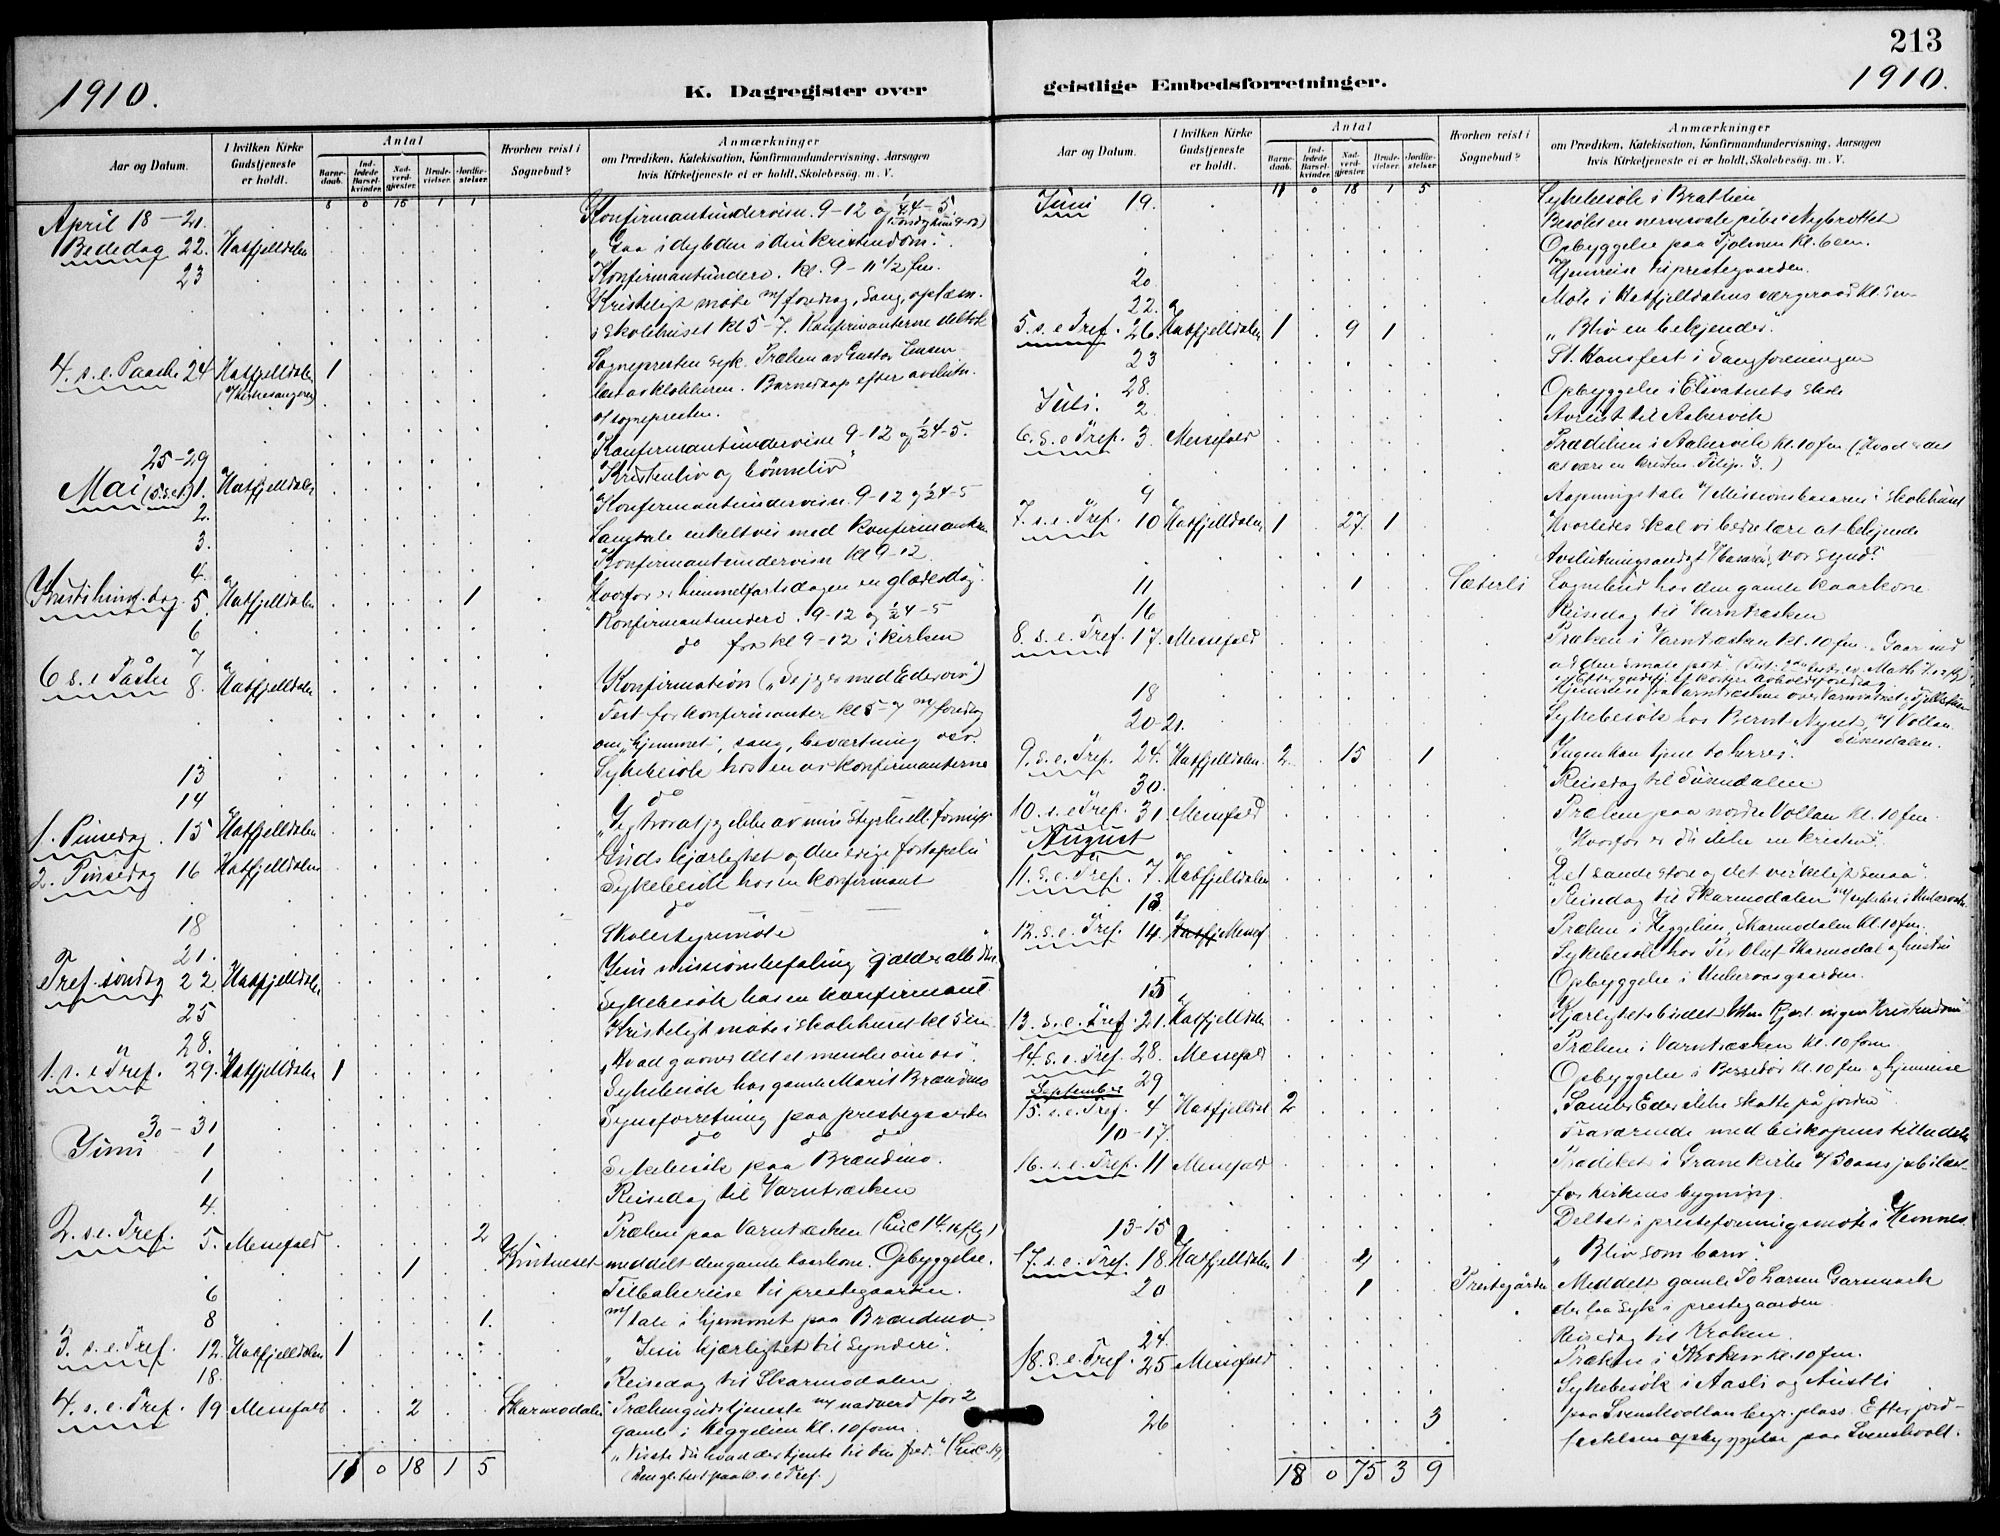 213
1910.
1910.
K. Dagregister over
geistlige Embedsforretninger.
Aar og Datum.
I hvilken Kirke Gudstjeneste er holdt.
Antal
Barne-daab.
Ind-ledede Barsel-kvinder.
Nad-verd-gjester.
Brude-vielser.
Jordfæ-stelser.
Hvorhen reist i Sognebud?
Anmærkninger
om Prædiken, Katekisation, Konfirmandundervisning, Aarsagen
hvis Kirketjeneste ei er holdt, Skolebesøg. m. V.
8 0 15 1 1
April 18-21. Konfirmantundervisn. 9-12 og ½4-5.
Bededag 22. Hatfjelldalen "Gaa i dybden i din kristendom".
23 Konfirmantunderv. kl. 9-11 1/2 fm.
Kristeligt møte m/ foredrag, sang, oplæsn.
i skolehuset kl 5-7. Konfirmanterne deltok
4. s.e. Paaske 24 Hatfjelldalen 1 Sognepresten syk. Præken av Gustav Jensen
(v/ kirkesangeren) læst av klokkeren. Barnedaap efter avslutn.
af sognepresten.
25-29 Konfirmantundervisn 9-12 og ½4-5.
Mai (5 s.e.P) 1. Hatfjelldalen "Kristenliv og bønneliv"
2. Konfirmantundervisn. 9-12 og ½4-5
3. Samtale enkeltvis med konfirmanterne
4. Konfirmantundervisn kl 9-12
Kristi him. dag 5. Hatfjelldalen 1 Hvorfor er himmelfartsdagen en glædesdag".
6 Konfirmantunderv. 9-12 og ½4-5
7 do fra kl 9-12 i kirken
6 s.e Påske 8. Hatfjelldalen Konfirmation
Fest for konfirmanter kl 5-7 m/ foredrag
om "hjemmet", sang, beværtning osv.
13 Sykebesøk hos en av konfirmanterne
14 do
1. Pinsedag 15 Hatfjelldalen
2. Pinsedag 16 Hatfjelldalen Guds kjærlighet og den evige fortapelse
18 Sykebesøk hos en konfirmant
21. Skolestyremøte
Tref. søndag 22 Hatfjelldalen Jesu missionsbefaling gjælder alle
25 Sykebesøk hos en konfirmant
28. Kristeligt møte i skolehuset kl 5 em
1. s. e Tref. 29. Hatfjelldalen 1 "Hvad gavner det et menneske om osv".
30-31 Sykebesøk hos gamle Marit Brændmo
Juni 1 Synsforretning paa prestegaarden
do do do
1 Sykebesøk paa Brændmo.
4. Reisedag til Varntræsken
2. s.e. Tref. 5. Messefald 2 Præken paa Varntræsken (Luc 14. 16 flg)
1 meddelt den gamle kaarkone. Opbyggelse.
6 Tilbakereise til prestegaarden.
8 1. m/ tale i hjemmet paa Brændmo.
3. s.e. Tref. 12. Hatfjelldalen 1 "Jesu kjærlighet til syndere".
18. Reisedag til Skarmodalen
4. s.e. Tref. 19 Messefald 2 Skarmodalen Prækengudstjeneste m/ nadverd for 2
gamle i Heggelien kl. 10 form
"Visste du hvad der tjente til din fred." (Luc. 19)
11 0 18 1 5
Aar og Datum.
I hvilken Kirke Gudstjeneste er holdt.
Antal
Barne-daab.
Ind-ledede Barsel-kvinder.
Nad-verd-gjester.
Brude-vielser.
Jordfæ-stelser.
Hvorhen reist i Sognebud?
Anmærkninger
om Prædiken, Katekisation, Konfirmandundervisning, Aarsagen
hvis Kirketjeneste ei er holdt, Skolebesøg. m. V.
11 0 18 1 5
Juni 19. Sykebesøk i Bratlien
Besøkt en nervesvak pike i Nybrottet
Opbyggelse paa Fjolmoen kl. 6 em.
20 Hjemreise til prestegaarden.
22. Møte i Hatfjelldalens værgeraad kl. 5 em
5. s. e Tref. 26. Hatfjelldalen 1 9 1 "Bliv en bekjender".
23 St. Hansfest i Sangforeningen
28. Opbyggelse i Elsvatnets skole
Juli. 2. Avreist til Aakervik
6. s. e Tref. 3. Messefald Prædiken i Aakervik kl. 10 fm (Hvad er det
at være en kristen. Filip. 3.)
9 Aapningstale v/ Missionsbasaren i skolehuset
7. s. e. Tref. 10 Hatfjelldalen 1 27 1 Hvorledes skal vi bedst lære at bekjende
Avslutningsandagt v/ basaren, vor synd?
11 1 Sæterli Sognebud hos den gamle kaarkone.
16 Reisedag til Varntræsken
8. s. e. Tref. 17. Messefald Præken i Varntræsken kl. 10 fm. "Gaar ind
ad den smale port".
18
20-21. Sykebesøk hos Bernt Nyset, v/ Vollan
Susendalen.
9. s. e. Tref. 24. Hatfjelldalen. 2. 15 1 Ingen kan tjene to herrer".
30. Reisedag til Susendalen
10. s. e Tref. 31. Messefald Præken paa nordre Vollan kl. 10 fm.
August "Hvorfor er du ikke en kristen".
11. s. e. Tref. 7. Hatfjelldalen "Det sande store og det virkeligt smaa".
13 Reisedag til Skarmodalen
12. s. e. Tref. 14. Messef Præken i Heggelien, Skarmodalen kl 10 fm.
Sykebesøk hos Per Oluf Skarmodal og hustru
15 Opbyggelse i Unkervasgaarden.
13. s. e. Tref. 21. Hatfjelldalen Kjærlighetsbudet
14. s. e. Tref. 28. Messefald Præken i Varntræsken kl. 10 form.
29 Opbyggelse i kl. 10 fm. og hjemreise
September
15. s. e. Tref. 4 Hatfjelldal 2 "Samler Eder ikke skatte på jorden
10-17. Fraværende med biskopens tilladelse
16. s. e. Tref. 11 Messefald Prædiket i Grane kirke v/ 50 aars jubilæet
for kirkens bygning.
13-15 Deltat i presteforeningsmøte i Hemnes.
17. s. e. Tref. 18. Hatfjelldalen 1 2 "Bliv som barn".
20 1 Prestegården Meddelt gamle Jo Larsen Garsmark
der laa syk i prestegaarden.
24. Reisedag til Kroken.
18. s. e. Tref. 25 Messefald Præken i Kroken kl. 10 fm.
Sykebesøk i Aasli og Austli
26 3 paa Svenskvollan begr. plass. Efter jord-
festelsen opbyggelse paa Svenskvoll.
18 0 75 3 9